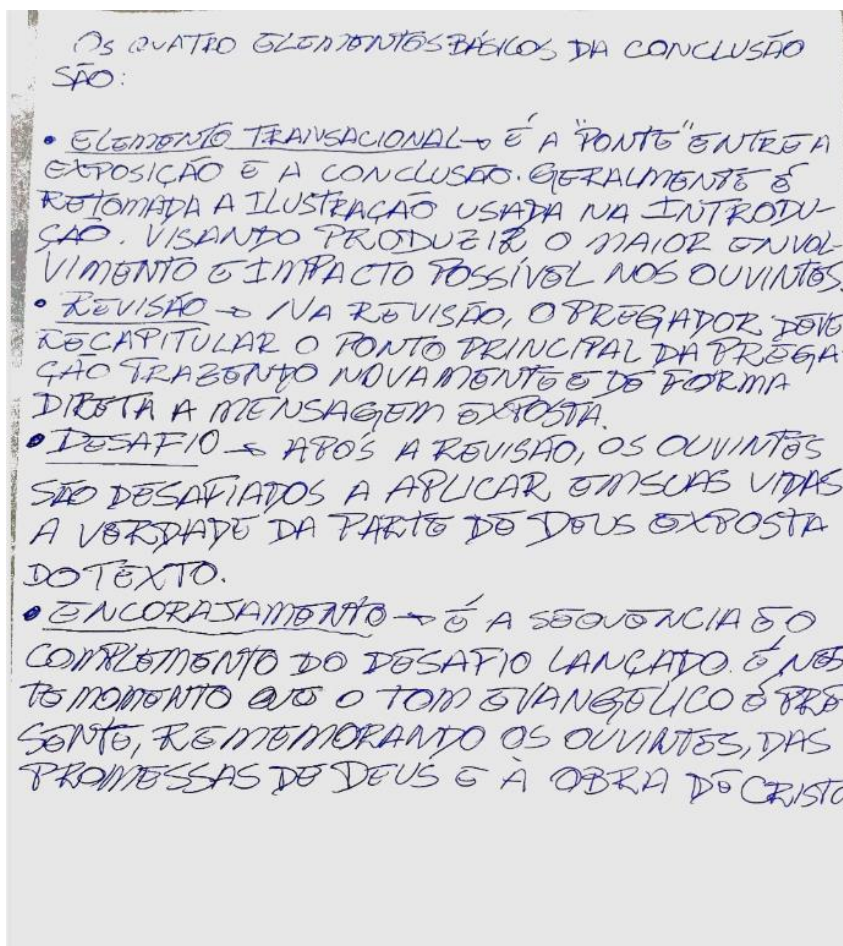 OS QUATRO ELEMENTOS BÁSICOS DA CONCLUSÃO
SÃO:
• ELEMENTO TRANSACIONAL → É A "PONTE" ENTRE A
EXPOSIÇÃO E A CONCLUSÃO. GERALMENTE É
RETOMADA A ILUSTRAÇÃO USADA NA INTRODU-
ÇÃO. VISANDO PRODUZIR O MAIOR ENVOL-
VIMENTO E IMPACTO POSSÍVEL NOS OUVINTES.
• REVISÃO → NA REVISÃO, O PREGADOR DEVE
RECAPITULAR O PONTO PRINCIPAL DA PREGA-
ÇÃO TRAZENDO NOVAMENTE E DE FORMA
DIRETA A MENSAGEM EXPOSTA.
• DESAFIO → APÓS A REVISÃO, OS OUVINTES
SÃO DESAFIADOS A APLICAR EM SUAS VIDAS
A VERDADE DA PARTE DE DEUS EXPOSTA
DO TEXTO.
• ENCORAJAMENTO → É A SEQUENCIA E O
COMPLEMENTO DO DESAFIO LANÇADO. É NES
TE MOMENTO QUE O TOM EVANGÉLICO É PRE
SENTE, REMEMORANDO OS OUVINTES, DAS
PROMESSAS DE DEUS E À OBRA DE CRISTO